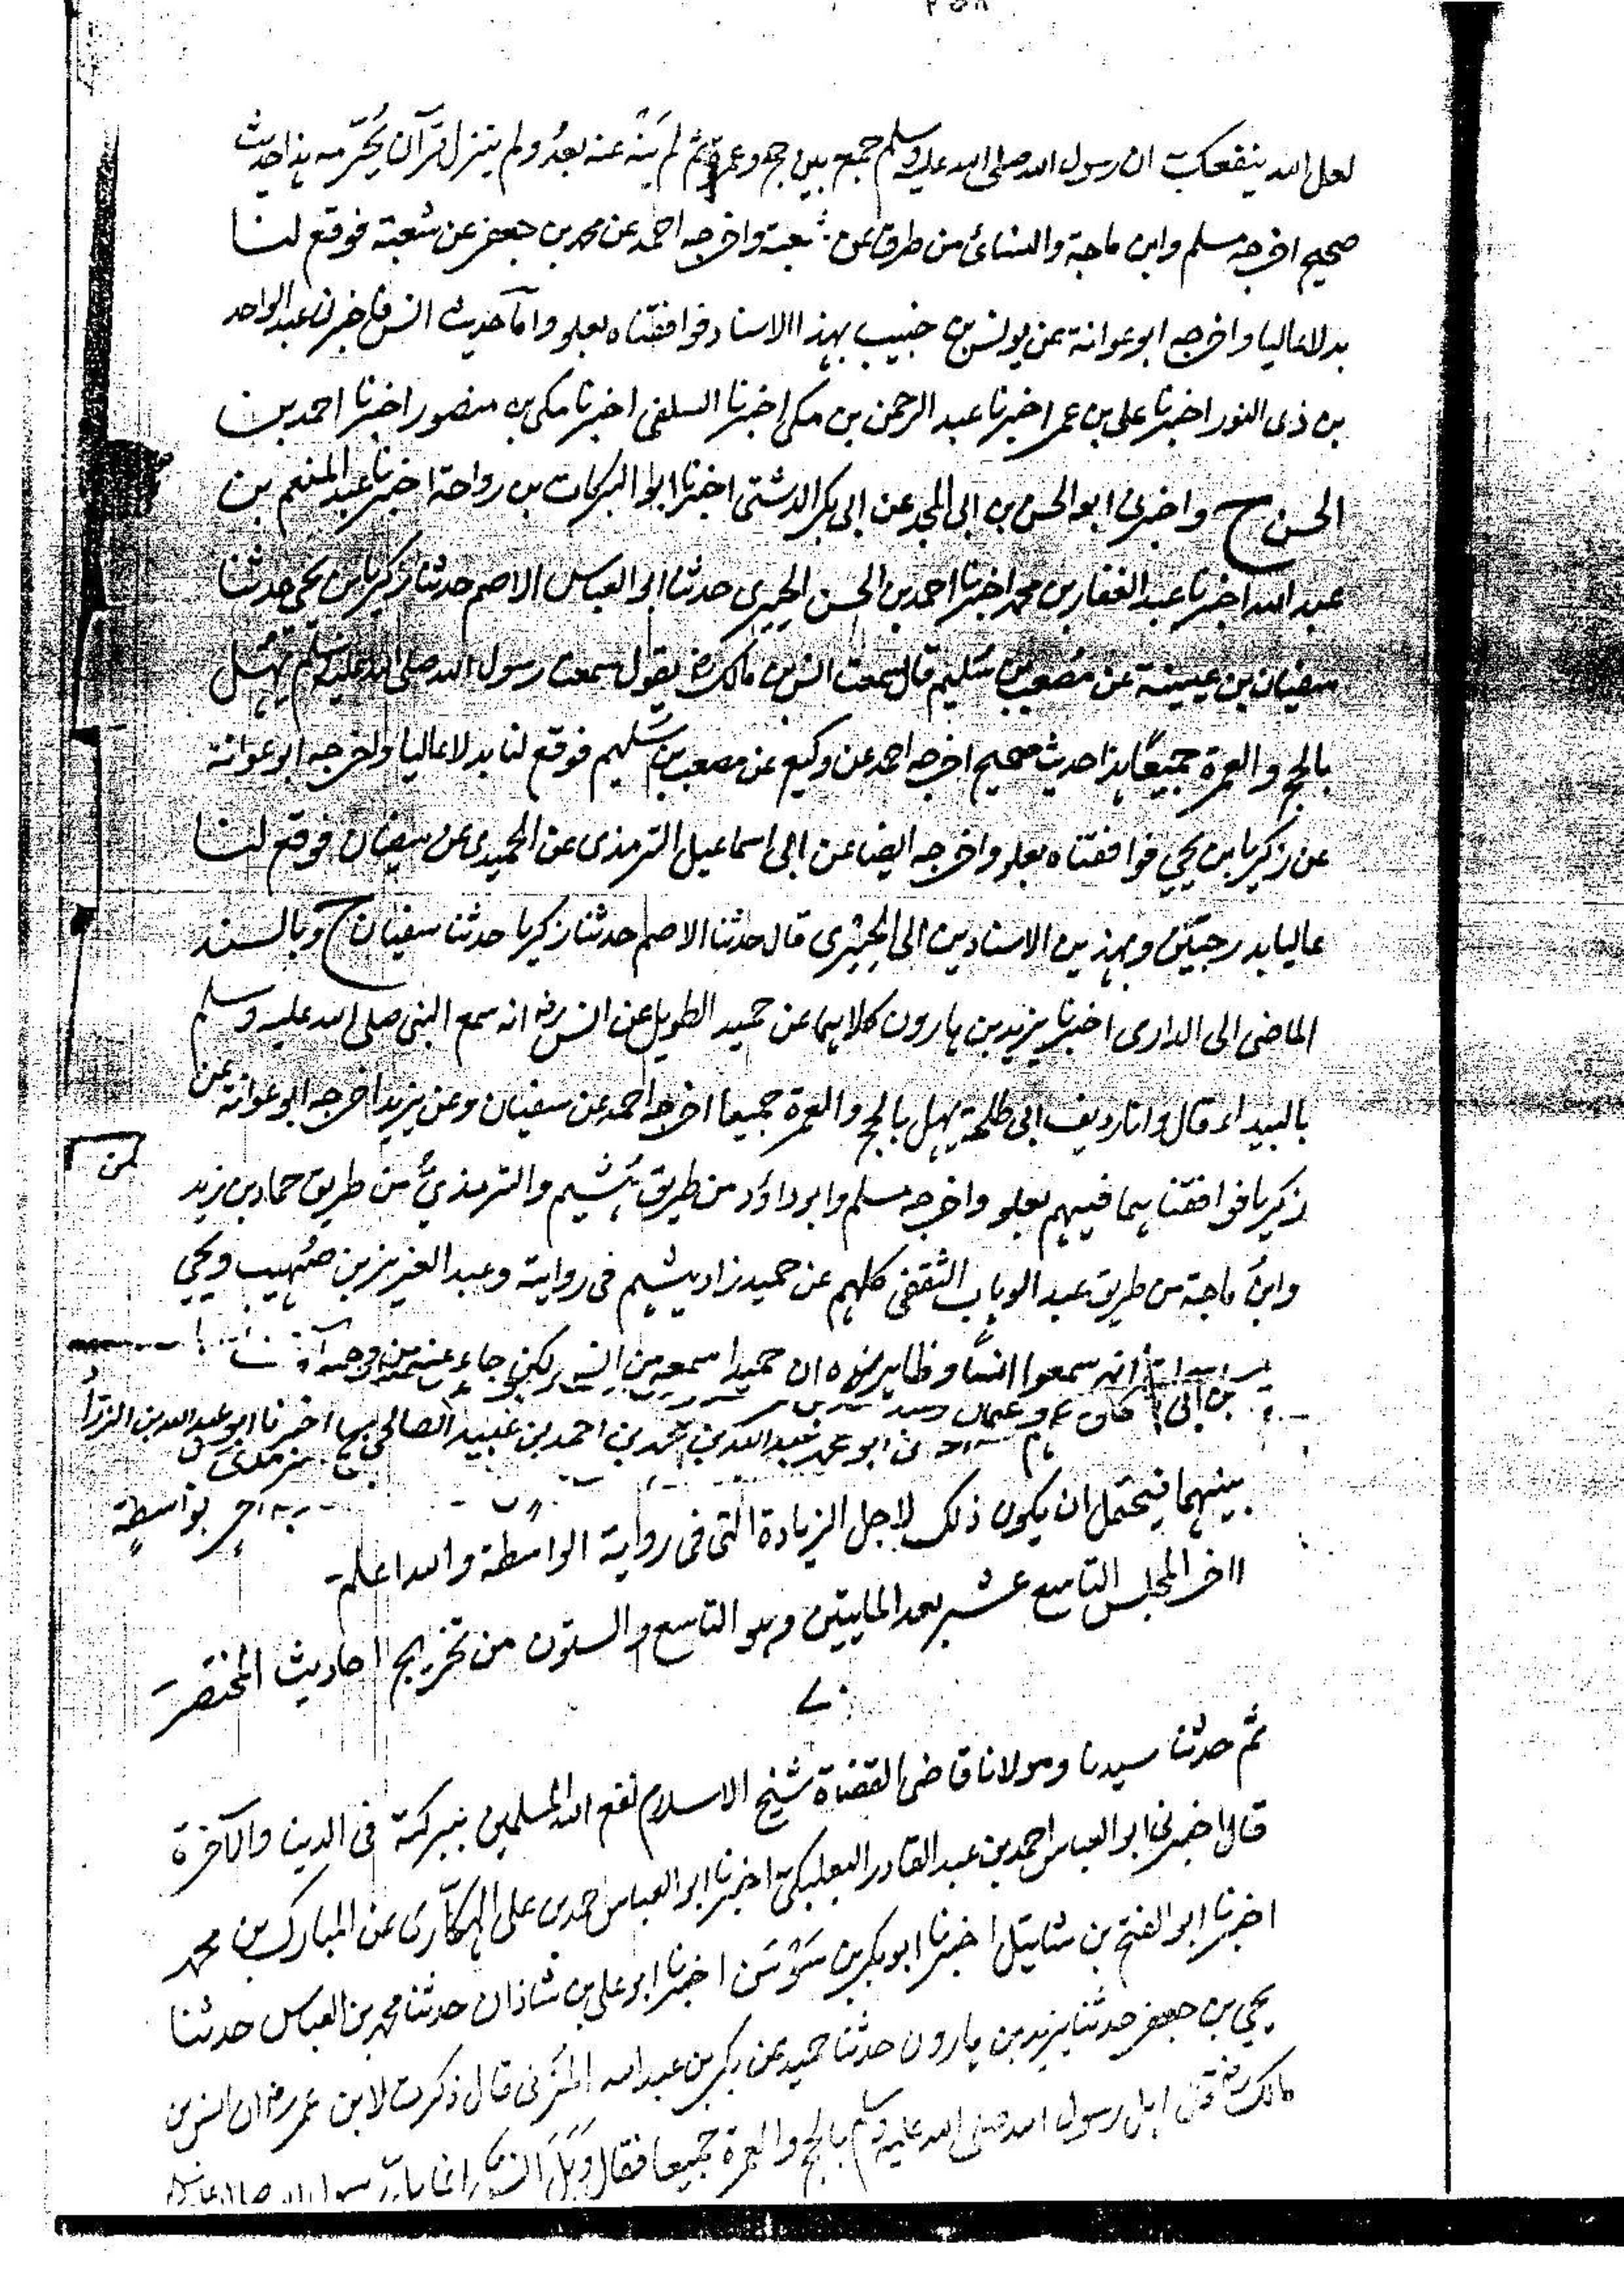 لعل الله ينفعك ان رسول الله صلى الله عليه وسلم جمع بين حج وعمرة ثم لم ينه عنه بعد ولم ينزل قرآن يُحرّمه هذا حديث
صحيح اخرجه مسلم وابن ماجة والنسائ من طرق عن شعبة واخرجه احمد عن محمد بن جعفر عن شعبة فوقع لنا
بدلا عاليا واخرجه ابو عوانة عن يونس بن حبيب بهذا الاسناد فوافقناه بعلو واما حديث انس فاخبرنا عبد الواحد
بن ذى النور اخبرنا على بن عمر اخبرنا عبد الرحمن بن مكى اخبرنا السلفى اخبرنا مكى بن منصور اخبرنا احمد بن
الحسن ح واخبرنى ابو الحسن بن ابى المجد عن ابى بكر الدشتى اخبرنا ابو البركات بن رواحة اخبرنا عبد المنعم بن
عبد الله اخبرنا عبد الغفار بن محمد اخبرنا احمد بن الحسن الحيرى حدثنا ابو العباس الاصم حدثنا زكريا بن يحي حدثنا
سفيان بن عيينة عن مصعب بن سُليم قال سمعت انس بن مالك رض يقول سمعت رسول الله صلى الله عليه وسلم يُهِلّ
بالحج والعمرة جميعًا هذا حديث صحيح اخرجه احمد عن وكيع عن مصعب بن سليم فوقع لنا بدلا عاليا واخرجه ابو عوانة
عن زكريا بن يحي فوافقناه بعلو واخرجه ايضا عن ابى اسماعيل الترمذى عن الحميدى عن سفيان فوقع لنا
عاليا بدرجتين وبهذين الاسنادين الى الحيرى قال حدثنا الاصم حدثنا زكريا حدثنا سفيان ح وبالسند
الماضى الى الدارى اخبرنا يزيد بن هارون كلاهما عن حميد الطويل عن انس رض انه سمع النبى صلى الله عليه وسلم
بالبيداء قال وانا رديف ابى طلحة يهل بالحج والعمرة جميعا اخرجه احمد عن سفيان وعن يزيد اخرجه ابو عوانة عن
زكريا فوافقناهما فيهم بعلو واخرجه مسلم وابو داؤد من طريق هُشيم والترمذي من طريق حماد بن زيد
وابن ماجة من طريق عبد الوهاب الثقفى كلهم عن حميد زاد هشيم فى رواية وعبد العزيز بن صُهيب ويحي
انهم سمعوا انسًا وظاهر هذه ان حميدا سمعه من انس لكن جاء عنه من وجه آخر
ابو محمد عبد الله بن محمد بن احمد بن عبيد الصالحى بها اخبرنا ابو عبد الله بن الزرّاد
بواسطة
بينهما فيحتمل ان يكون ذلك لاجل الزيادة التى فى رواية الواسطة والله اعلم
اخر المجلس التاسع عشر بعد المايتين وهو التاسع والستون من تخريج احاديث المختصر
٧٠
ثم حدثنا سيدنا ومولانا قاضى القضاة شيخ الاسلام نفع الله المسلمين ببركته فى الدنيا والآخرة
قال اخبرنى ابو العباس احمد بن عبد القادر البعلبكى اخبرنا ابو العباس احمد بن على الهكّارى عن المبارك بن محمد
اخبرنا ابو الفتح بن شاتيل اخبرنا ابو بكر بن سَوْسَن اخبرنا ابو على بن شاذان حدثنا محمد بن العباس حدثنا
يحي بن جعفر حدثنا يزيد بن هارون حدثنا حميد عن بكر بن عبد الله المزنى قال ذكرت لابن عمر رض ان انس بن
مالك رض اهل رسول الله صلى الله عليه وسلم بالحج والعمرة جميعا فقال وَهَلَ انس انما